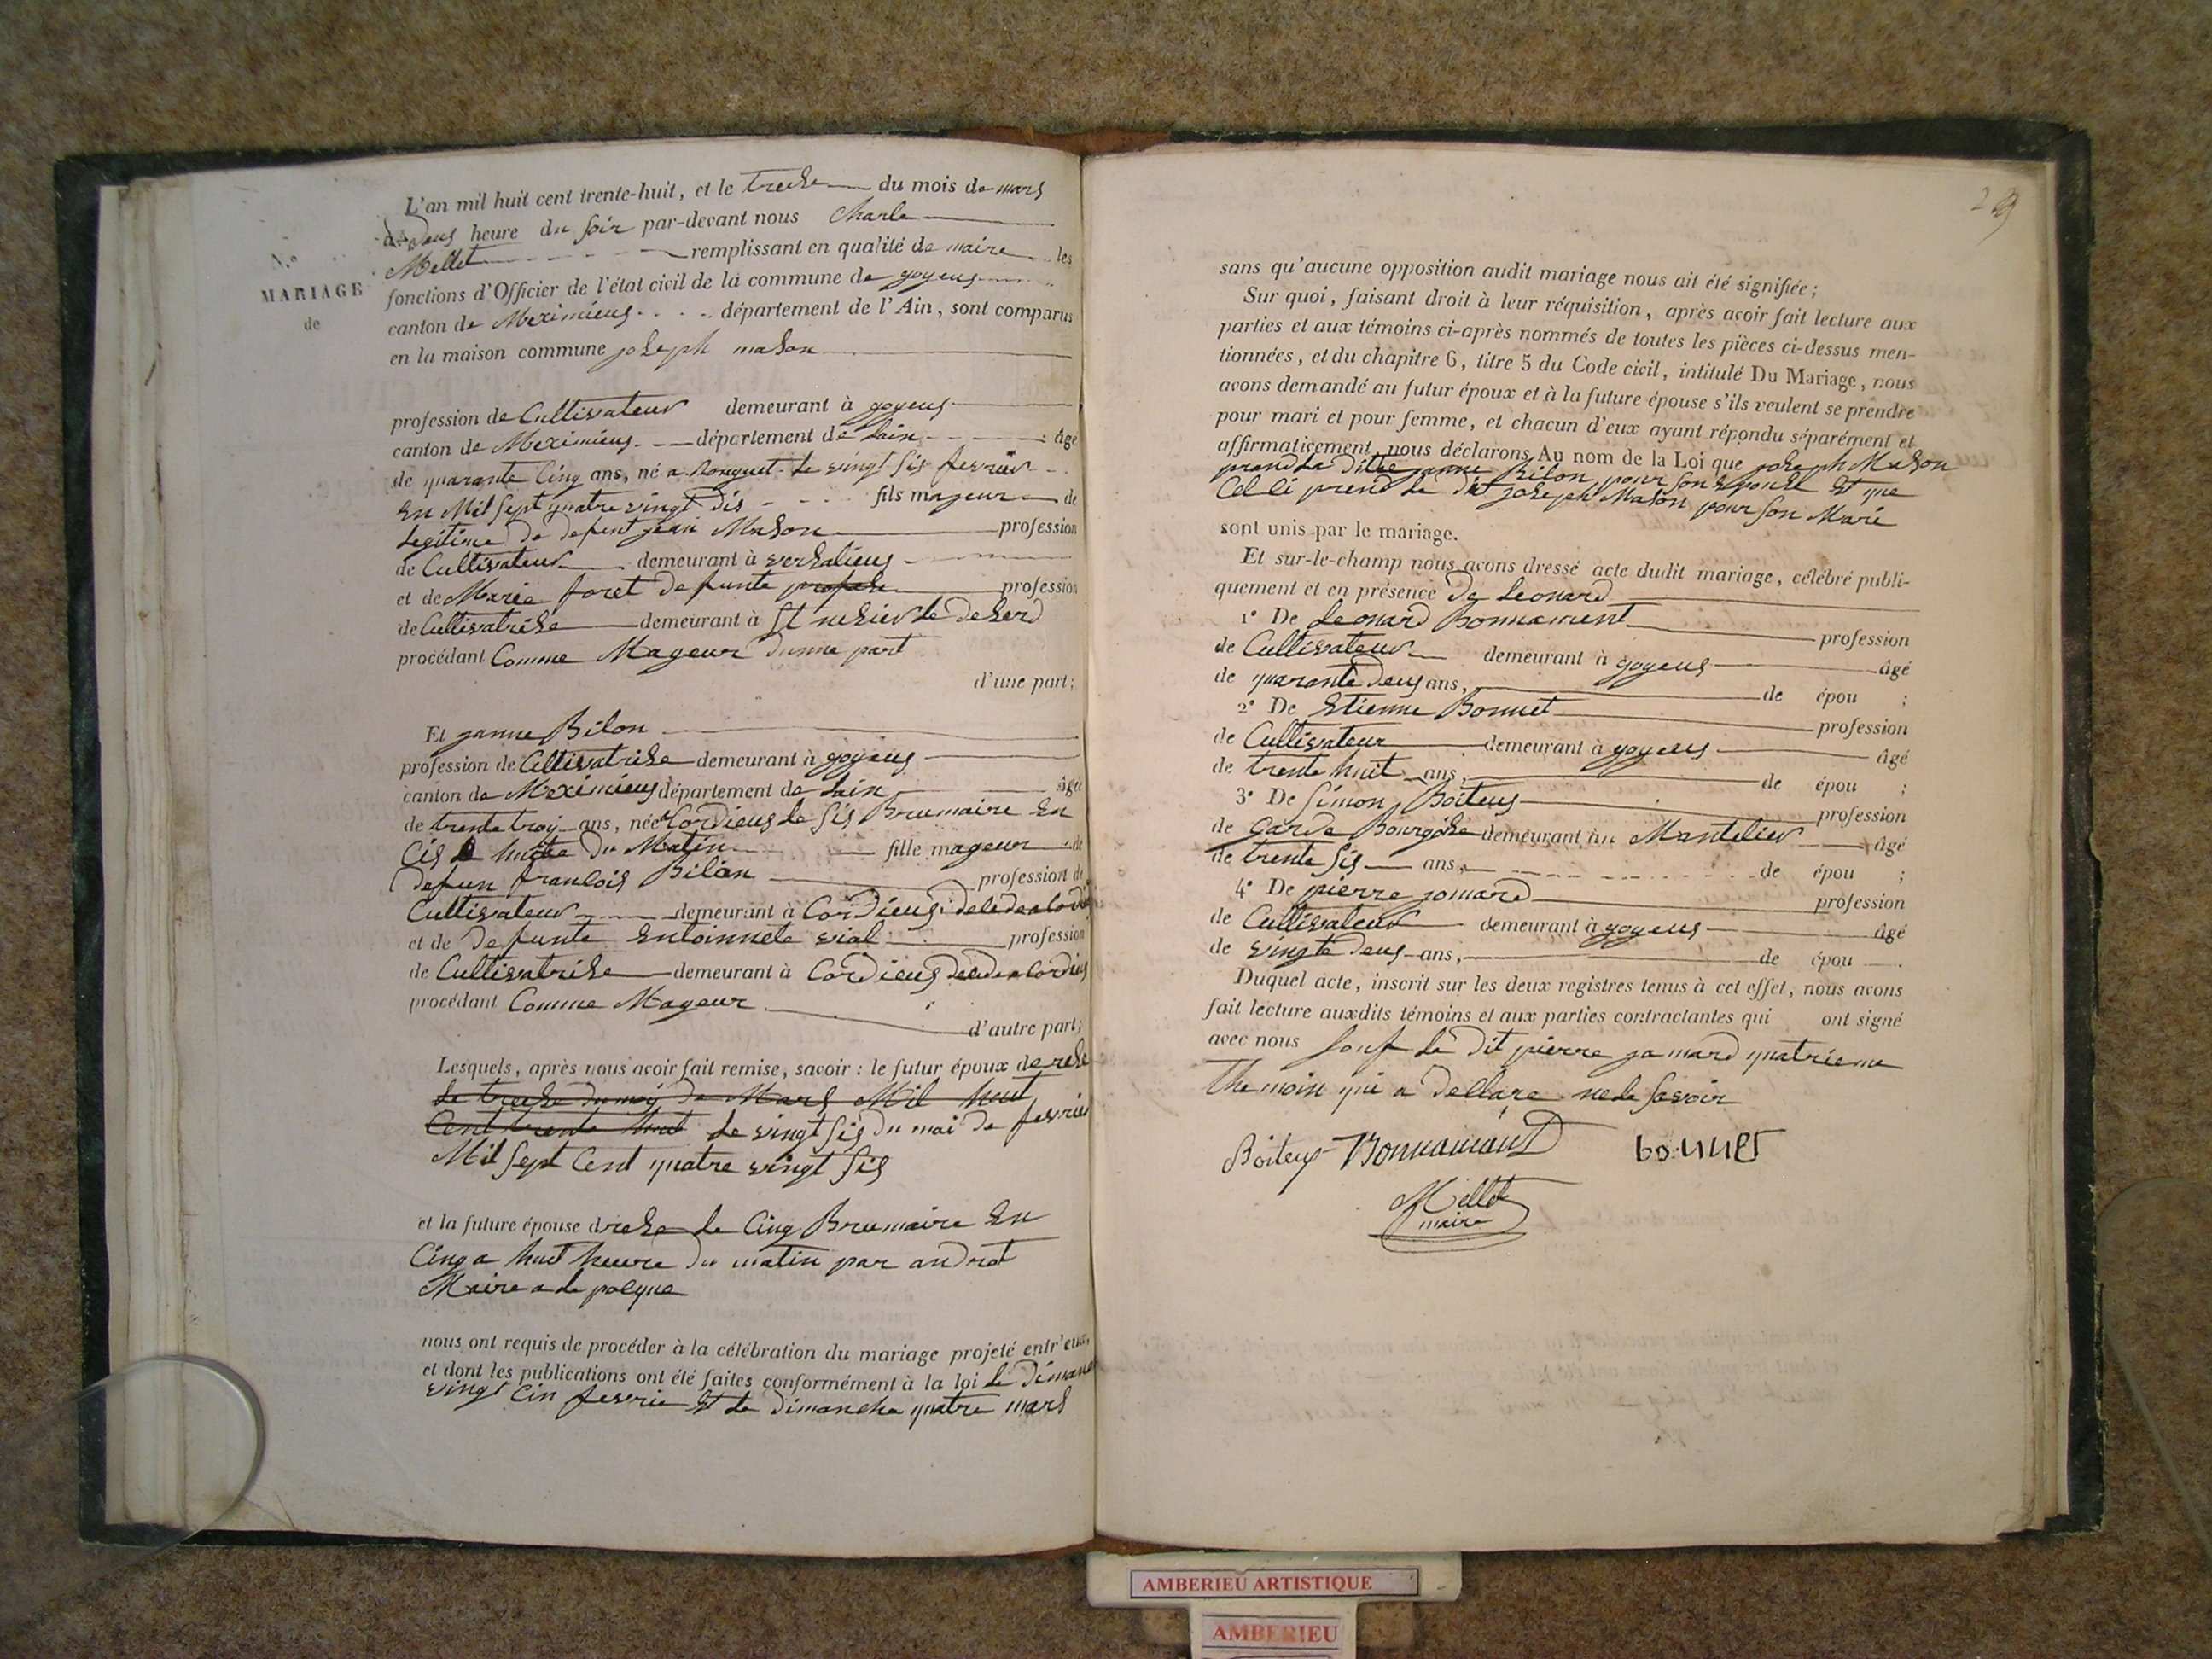 N.o
MARIAGE
de
L'an mil huit cent trente-huit, et le treche du mois de mars
à deus heure du soir par-devant nous Charle
Mellet remplissant en qualité de maire les
fonctions d'Officier de l'état civil de la commune de joyeus
canton de Meximieus département de l'Ain, sont comparus
en la maison commune joseph mason
profession de Cultivateur demeurant à joyeus
canton de Meximieus département de lain âgé
de quarante Cinq ans, né a le vingt sis fevrier
En Mil sept quatre vingt dis fils majeur de
Legitime de defunt jean Mason profession
de Cultivateur demeurant à versalieus
et de Marie foret defunte profession
de Cultivatrise demeurant à St nesier le deserd
procédant Comme Mageur dunne part
d'une part;
Et janne Bilon
profession de Cultivatrise demeurant à joyeus
canton de Meximieus département de lain âgée
de trente troy ans, née Cordieus le sis Brumaire En
Cis huite du Matin fille mageur de
defun francois Bilon profession de
Cultivateur demeurant à Cordieus
et de defunte Entoinnete vial profession
de Cultivatrise demeurant à Cordieus
procédant Comme Mageur
d'autre part;
Lesquels, après nous avoir fait remise, savoir : le futur époux de
le treche du moy de Mars Mil huit
Cent trente huit le vingt sis du mai de fevrier
Mil sept Cent quatre vingt sis
et la future épouse d le Cinq Brumaire En
Cinq a huit heure du matin par androt
Maire a la polyne
nous ont requis de procéder à la célébration du mariage projeté entr'eux,
et dont les publications ont été faites conformément à la loi le dimanche
vingt Cin fevrie Et le dimanche quatre mars
sans qu'aucune opposition audit mariage nous ait été signifiée;
Sur quoi, faisant droit à leur réquisition, après avoir fait lecture aux
parties et aux témoins ci-après nommés de toutes les pièces ci-dessus men-
tionnées, et du chapitre 6, titre 5 du Code civil, intitulé Du Mariage, nous
avons demandé au futur époux et à la future épouse s'ils veulent se prendre
pour mari et pour femme, et chacun d'eux ayant répondu séparément et
affirmativement, nous déclarons Au nom de la Loi que joseph Mason
prend la ditte janne Bilon pour son Epouse Et que
Celli prend le dit joseph Mason pour son Marie
sont unis par le mariage.
Et sur-le-champ nous avons dressé acte dudit mariage, célébré publi-
quement et en présence De Leonard
1° De Leonard Bonnament profession
de Cultivateur demeurant à joyeus âgé
de quarante deus ans, de épou ;
2° De Etienne Bonnet profession
de Cultivateur demeurant à joyeus âgé
de trente huit ans, de épou ;
3° De Simon Boiteus profession
de Garde demeurant au Mantelier âgé
de trente sis ans, de épou ;
4° De pierre jomard profession
de Cultivateur demeurant à joyeus âgé
de vingte deus ans, de épou
Duquel acte, inscrit sur les deux registres tenus à cet effet, nous avons
fait lecture auxdits témoins et aux parties contractantes qui ont signé
avec nous souf le dit pierre jamard quatrieme
Themoin qui a dellare ne le savoir
Boiteux Bonnamant bonnet
Mellet
maire
AMBERIEU ARTISTIQUE
AMBERIEU